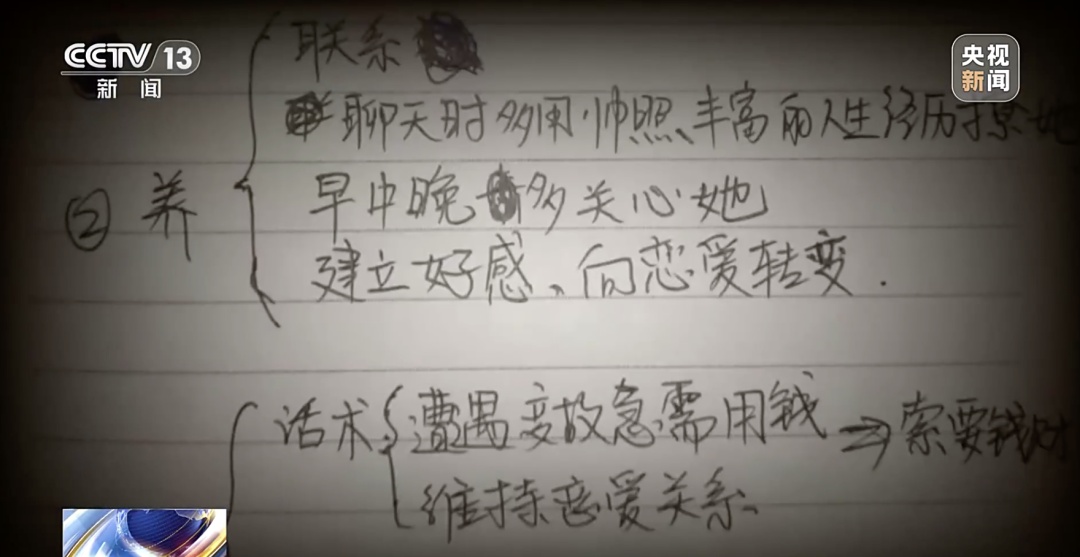 CCTV 13
新闻
央视
新闻
联系
聊天时多用帅照、丰富的人生经历撩她
② 养
早中晚多关心她
建立好感、向恋爱转变.
话术
遭遇变故急需用钱 ⇒ 索要钱财
维持恋爱关系